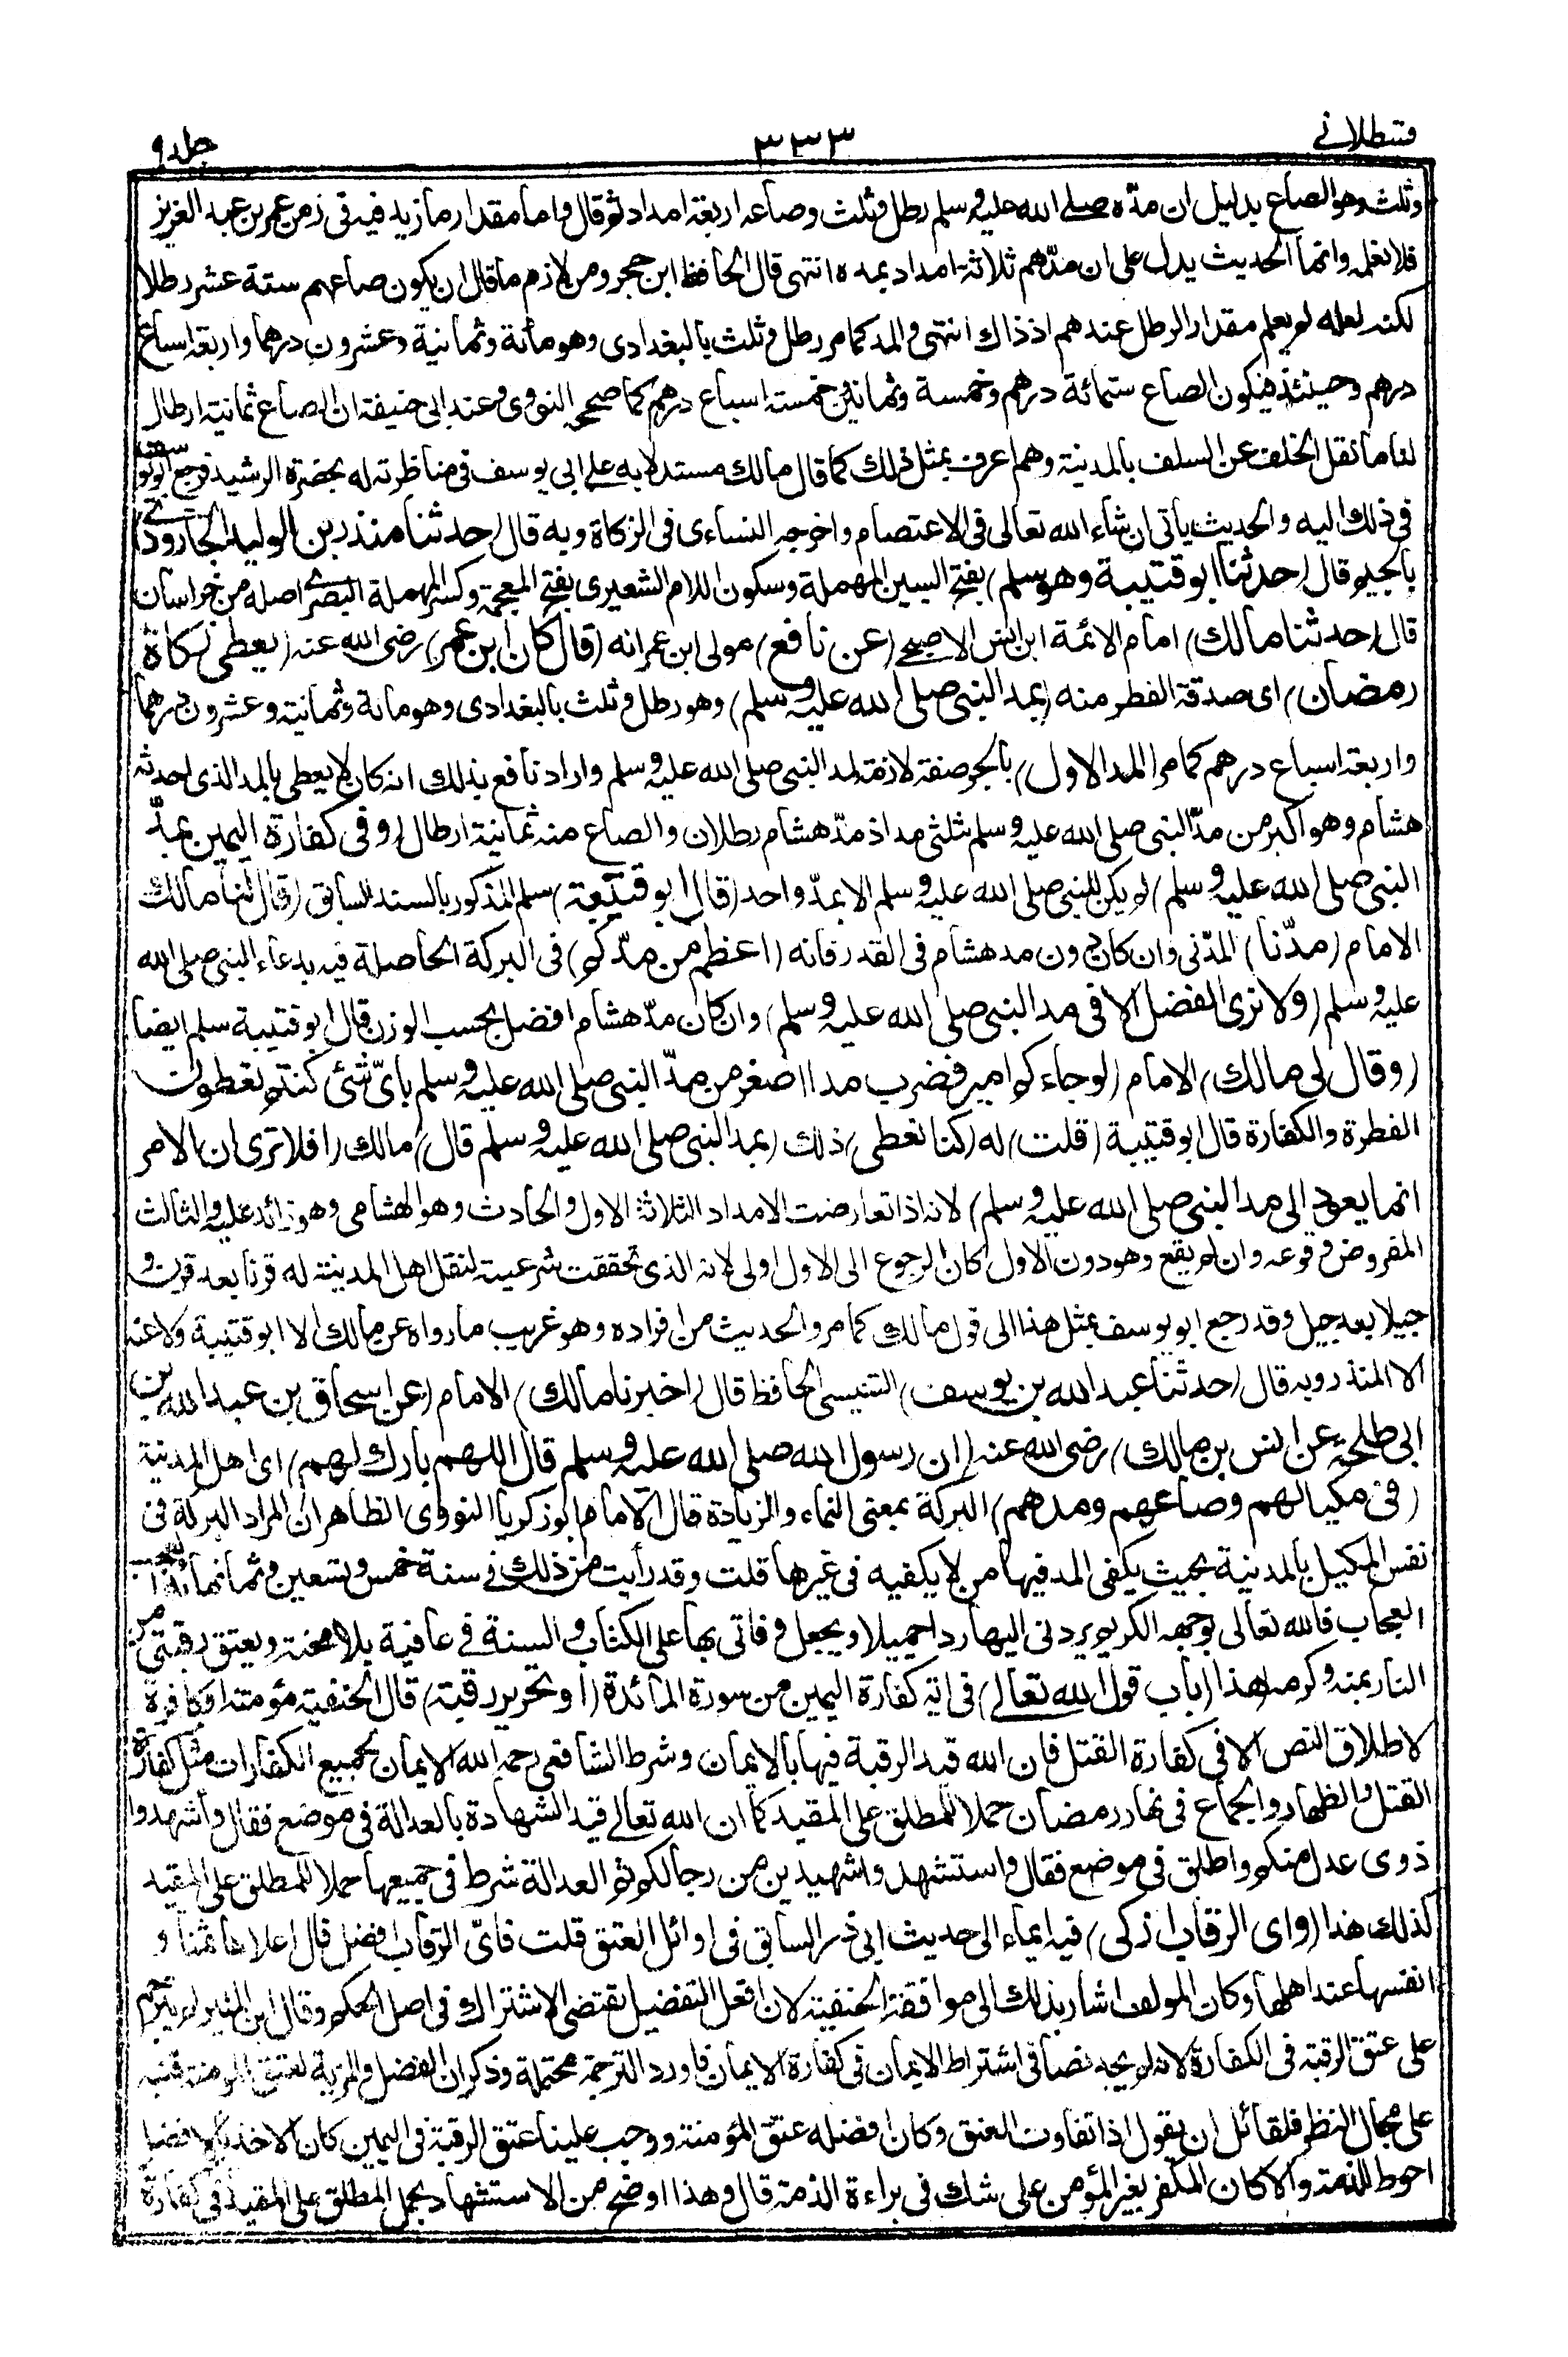 قسطلانے ٣٣٣ جلد ٩
وثلث وهو الصاع بدليل ان مدّه صلى الله عليه وسلم رطل وثلث وصاعه اربعة امداد ثم قال واما مقدار ما زيد فيه فى زمن عمر بن عبد العزيز
فلا نعلمه وانما الحديث يدل على ان مدّهم ثلاثة امداد بمده انتهى قال الحافظ ابن حجر ومن لازم ما قال ان يكون صاعهم ستة عشر رطلا
لكنه لعله لم يعلم مقدار الرطل عندهم اذ ذاك انتهى والمد كما مر رطل وثلث بالبغدادى وهو مائة وثمانية وعشرون درهما واربعة اسباع
درهم وحينئذ فيكون الصاع ستمائة درهم وخمسة وثمانين وخمسة اسباع درهم كما صححه النووى وعند ابى حنيفة ان الصاع ثمانية ارطال
لنا ما نقل الخلف عن السلف بالمدينة وهم اعرف بمثل ذلك كما قال مالك مستدلا به على ابى يوسف فى مناظرته له بحضرة الرشيد فرجع ابو يوسف
فى ذلك اليه والحديث ياتى ان شاء الله تعالى فى الاعتصام واخرجه النساءى فى الزكاة وبه قال (حدثنا منذر بن الوليد الجارودى)
بالجيم قال (حدثنا ابو قتيبة وهو سلم) بفتح السين المهملة وسكون اللام الشعيرى بفتح المعجمة وكسر المهملة البصرى اصله من خراسان
قال (حدثنا مالك) امام الائمة ابن انس الاصبحى (عن نافع) مولى ابن عمر انه (قال كان ابن عمر) رضى الله عنه (يعطى زكاة
رمضان) اى صدقة الفطر منه (بمد النبى صلى الله عليه وسلم) وهو رطل وثلث بالبغدادى وهو مائة وثمانية وعشرون درهما
واربعة اسباع درهم كما مر (المد الاول) بالجر صفة لازمة لمد النبى صلى الله عليه وسلم واراد نافع بذلك انه كان لا يعطى بالمد الذى احدثه
هشام وهو اكبر من مدّ النبى صلى الله عليه وسلم بثلثى مد اذ مدّ هشام رطلان والصاع منه ثمانية ارطال (وفى كفارة اليمين بمدّ
النبى صلى الله عليه وسلم) لم يكن للنبى صلى الله عليه وسلم الا بمدّ واحد (قال ابو قتيبة) سلم المذكور بالسند السابق (قال لنا مالك
الامام (مدّنا) المدّنى وان كان دون مد هشام فى القدر فانه (اعظم من مدّكم) فى البركة الحاصلة فيه بدعاء النبى صلى الله
عليه وسلم (ولا نرى الفضل الا فى مد النبى صلى الله عليه وسلم) وان كان مدّ هشام افضل بحسب الوزن قال ابو قتيبة سلم ايضا
(وقال لى مالك) الامام (لو جاءكم امير فضرب مدا اصغر من مدّ النبى صلى الله عليه وسلم باىّ شئ كنتم تعطون
الفطرة والكفارة قال ابو قتيبة (قلت) له (كنا نعطى) ذلك (بمد النبى صلى الله عليه وسلم قال) مالك (افلا ترى ان الامر
انما يعود الى مد النبى صلى الله عليه وسلم) لانه اذا تعارضت الامداد الثلاثة الاول والحادث وهو الهشامى وهو زائد عليه والثالث
المفروض وقوعه وان لم يقع وهو دون الاول كان الرجوع الى الاول اولى لانه الذى تحققت شرعيته لنقل اهل المدينة له قرنا بعد قرن و
جيلا بعد جيل وقد رجع ابو يوسف بمثل هذا الى قول مالك كما مر والحديث من افراده وهو غريب ما رواه عن مالك الا ابو قتيبة ولا عنه
الا المنذر وبه قال (حدثنا عبد الله بن يوسف) التنيسى الحافظ قال (اخبرنا مالك) الامام (عن اسحاق بن عبد الله بن
ابى طلحة عن انس بن مالك) رضى الله عنه (ان رسول الله صلى الله عليه وسلم قال اللهم بارك لهم) اى اهل المدينة
(فى مكيالهم وصاعهم ومدهم) البركة بمعنى النماء والزيادة قال الامام ابو زكريا النووى الظاهر ان المراد البركة فى
نفس المكيل بالمدينة بحيث يكفى المد فيها من لا يكفيه فى غيرها قلت وقد رأيت من ذلك فى سنة خمس وتسعين وثمانمائة
العجاب فالله تعالى بوجهه الكريم يردنى اليها ردا جميلا ويجعل وفاتى بها على الكتاب والسنة فى عافية بلا محنة ويعتق رقبتى من
النار بمنه وكرمه هذا (باب قول الله تعالى) فى اية كفارة اليمين من سورة المائدة (او تحرير رقبة) قال الحنفية مؤمنة او كافرة
لاطلاق النص الا فى كفارة القتل فان الله قيد الرقبة فيها بالايمان وشرط الشافعى رحمه الله الايمان بجميع الكفارات مثل كفارة
القتل والظهار والجماع فى نهار رمضان حملا للمطلق على المقيد كما ان الله تعالى قيد الشهادة بالعدالة فى موضع فقال واشهدوا
ذوى عدل منكم واطلق فى موضع فقال واستشهدوا شهيدين من رجالكم ثم العدالة شرط فى جميعها حملا للمطلق على المقيد
كذلك هذا (واى الرقاب ازكى) فيه ايماء الى حديث ابى ذر السابق فى اوائل العتق قلت فاىّ الرقاب افضل قال اعلاها ثمنا و
انفسها عند اهلها وكان المولف اشار بذلك الى موافقة الحنفية لان افعل التفضيل يقتضى الاشتراك فى اصل الحكم وقال ابن المنير لم يترجم
على عتق الرقبة فى الكفارة لانه لم يجد نصا فى اشتراط الايمان فى كفارة الايمان فاورد الترجمة محتملة وذكر ان الفضل والمزية لعتق المومنة فنبه
على مجال النظر فلقائل ان يقول اذا تفاوت العتق وكان افضله عتق المؤمنة ووجب علينا عتق الرقبة فى اليمين كان الاخذ بالافضل
احوط للذمة والا كان المكفر بغير المؤمن على شك فى براءة الذمة قال وهذا اوضح من الاستشهاد بحمل المطلق على المقيد فى كفارة